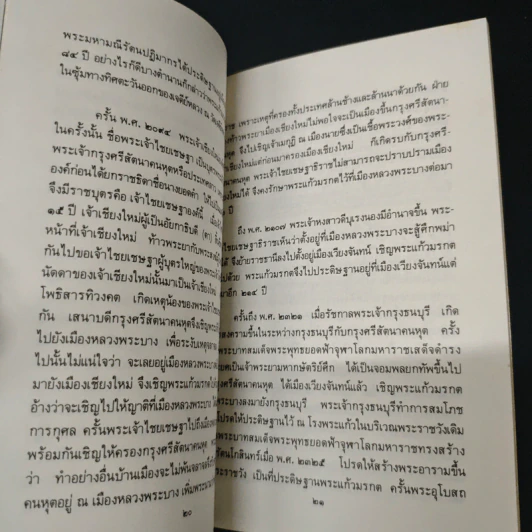 พระมหามณีรัตนปฏิมากรได้ประดิษฐานอยู่
๘๔ ปี อย่างไรก็ดีบางตำนานก็กล่าวว่าพระแก้ว
ในซุ้มทางทิศตะวันออกของเจดีย์หลวง ณ วัด
ครั้น พ.ศ. ๒๐๙๔ พระเจ้าเชียงใหม่
ในครั้งนั้น ชื่อพระเจ้าไชยเชษฐา เป็นบุตร
พระเจ้ากรุงศรีสัตนาคนหุตหรือประเทศ
องค์ก่อนได้ยกราชธิดาชื่อนางยอดคำ ให้
จึงมีราชบุตรคือ เจ้าไชยเชษฐาองค์นี้ เมื่อ
๑๕ ปี เจ้าเชียงใหม่ผู้เป็นอัยกาธิบดี (ตา)
หน้าที่เจ้าเชียงใหม่ ท้าวพระยากับพระ
กันไปขอเจ้าไชยเชษฐาผู้บุตรใหญ่ของพระเจ้า
นัดดาของเจ้าเชียงใหม่นั้นมาเป็นเจ้าเชียงใหม่
โพธิสารทิวงคต เกิดเหตุน้องของพระเจ้าไชย
กัน เสนาบดีกรุงศรีสัตนาคนหุตจึงเชิญพระเจ้า
ไปยังเมืองหลวงพระบาง เพื่อระงับเหตุ
ไปนั้นไม่แน่ใจว่า จะเลยอยู่เมืองหลวงพระบาง
มายังเมืองเชียงใหม่ จึงเชิญพระแก้วมรกต
อ้างว่าจะเชิญไปให้ญาติที่เมืองหลวงพระบาง
การกุศล ครั้นพระเจ้าไชยเชษฐาไปถึงเมือง
พร้อมกันเชิญให้ครองกรุงศรีสัตนาคนหุต
ว่า ทำอย่างอื่นบ้านเมืองจะไม่พ้นจลาจล
คนหุตอยู่ ณ เมืองหลวงพระบาง เพิ่มพระนาม
๒๐
ราช เพราะเหตุที่ครองทั้งประเทศล้านช้างและล้านนาด้วยกัน ฝ่าย
ท้าวพระยาเมืองเชียงใหม่ไม่พอใจจะเป็นเมืองขึ้นกรุงศรีสัตนา-
คนหุต จึงไปเชิญเจ้าเมกุฏิ ณ เมืองนายซึ่งเป็นเชื้อพระวงศ์ของพระ-
เจ้าเชียงใหม่แต่ก่อนมาครองเมืองเชียงใหม่ ก็เกิดรบกับกรุงศรี-
สัตนาคนหุต พระเจ้าไชยเชษฐาธิราชไม่สามารถจะปราบปรามเมือง
เชียงใหม่ได้ จึงคงรักษาพระแก้วมรกตไว้ที่เมืองหลวงพระบางต่อมา
ปี
ถึง พ.ศ. ๒๑๐๗ พระเจ้าหงสาวดีบุเรงนองมีอำนาจขึ้น พระ-
เจ้าไชยเชษฐาธิราชเห็นว่าตั้งอยู่ที่เมืองหลวงพระบางจะสู้ศึกพม่า
จึงย้ายราชธานีลงไปตั้งอยู่เมืองเวียงจันทน์ เชิญพระแก้วมรกต
ไปด้วย พระแก้วมรกตจึงไปประดิษฐานอยู่ที่เมืองเวียงจันทน์แต่
มาอีก ๒๑๔ ปี
ครั้นถึง พ.ศ. ๒๓๒๑ เมื่อรัชกาลพระเจ้ากรุงธนบุรี เกิด
สงครามขึ้นในระหว่างกรุงธนบุรีกับกรุงศรีสัตนาคนหุต ครั้ง
พระบาทสมเด็จพระพุทธยอดฟ้าจุฬาโลกมหาราชเสด็จดำรง
เป็นเจ้าพระยามหากษัตริย์ศึก ได้เป็นจอมพลยกทัพขึ้นไป
กรุงศรีสัตนาคนหุต ได้เมืองเวียงจันทน์แล้ว เชิญพระแก้วมรกต
พระบางลงมายังกรุงธนบุรี พระเจ้ากรุงธนบุรีทำการสมโภช
โปรดให้ประดิษฐานไว้ ณ โรงพระแก้วในบริเวณพระราชวังเดิม
พระบาทสมเด็จพระพุทธยอดฟ้าจุฬาโลกมหาราชทรงสร้าง
รัตนโกสินทร์เมื่อ พ.ศ. ๒๓๒๕ โปรดให้สร้างพระอารามขึ้น
ราชวัง เป็นที่ประดิษฐานพระแก้วมรกต ครั้นพระอุโบสถ
๒๑